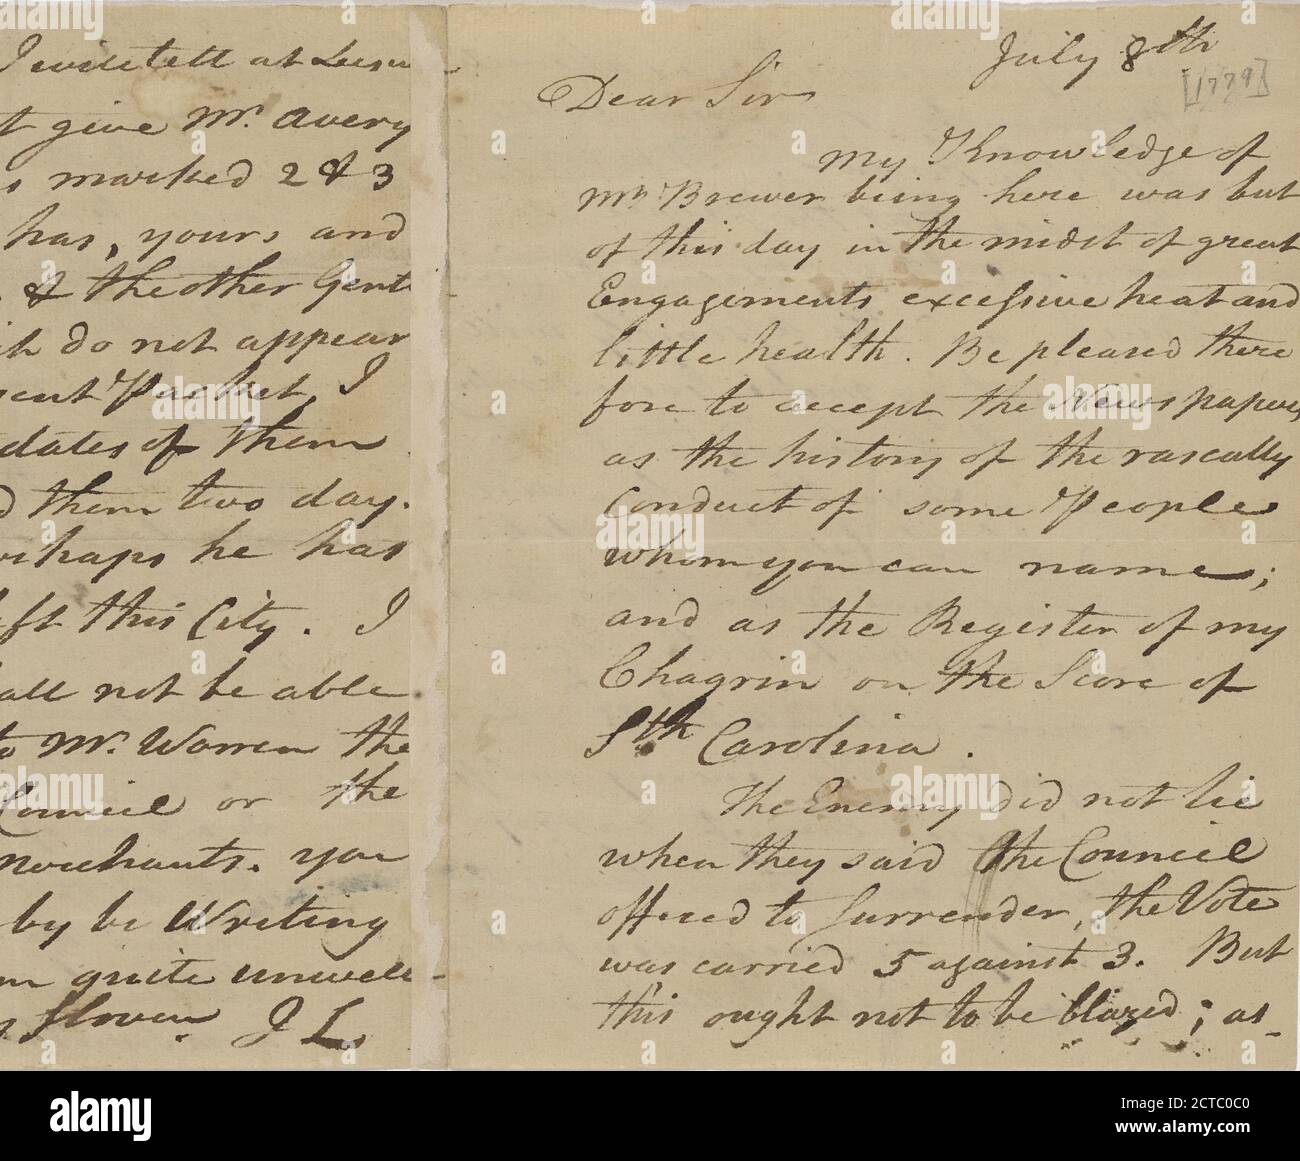 I will tell at Leisu-
t give Mr. Avery
s marked 2 & 3
has, yours and
& the other Gent-
ich do not appear
sent Packet, I
dates of them
d them two day.
erhaps he has
eft this City. I
all not be able
to Mr. Warren the
Council or the
Merchants. you
by be Writing
m quite unwell-
J L
July 8th
[1779]
Dear Sir
My Knowledge of
Mr Brewer being here was but
of this day in the midst of great
Engagements excessive heat and
little health. Be pleased there
fore to accept the News papers,
as the history of the rascally
Conduct of some People
whom you can name;
and as the Register of my
Chagrin on the Score of
Sth Carolina.
The Enemy did not lie
when they said the Council
offered to Surrender, the Vote
was carried 5 against 3. But
this ought not to be blazed; as-
alamy
a
alamy
Image ID: 2CTC0C0
www.alamy.com